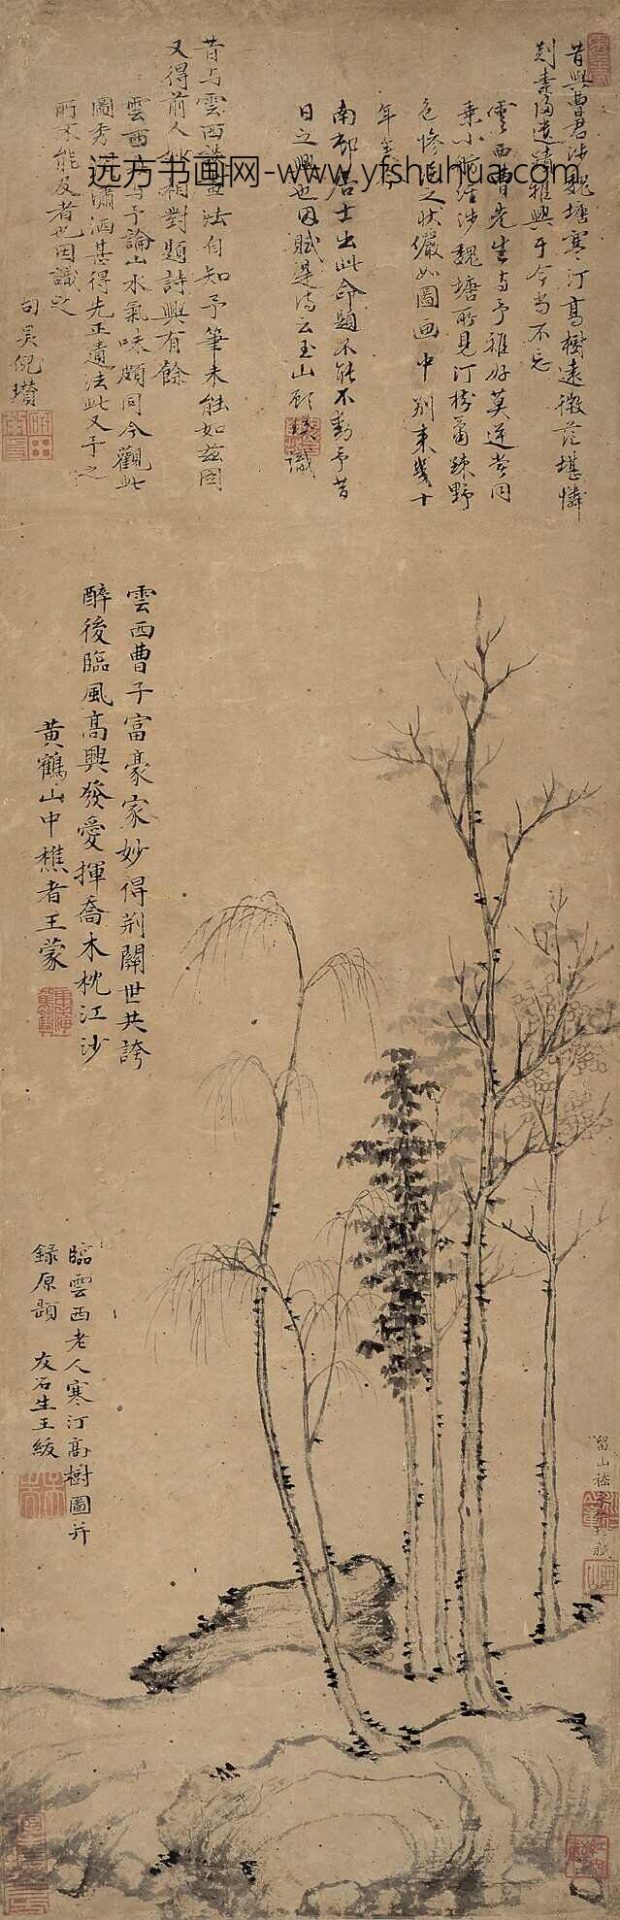 昔與曹君涉魏塘寒汀高樹遠微茫堪憐
剡素隔遺清雅興于今尚不忘
雲西曹先生與予雅好莫逆嘗同
乘小舟涉魏塘所見汀樹蕭疎野
色慘淡之狀儼如圖画中別來幾十
年矣
南邨居士出此命題不能不動予昔
日之興也因賦是詩云玉山顧瑛識
昔与雲西論畫法自知予筆未能如茲圖
又得前人妙相對題詩興有餘
雲西與予論山水氣味頗同今觀此
圖秀潤瀟洒甚得先正遺法此又予之
所不能及者也因識之
句吴倪瓚
雲西曹子富豪家妙得荆關世共誇
醉後臨風高興發愛揮喬木枕江沙
黄鶴山中樵者王蒙
臨雲西老人寒汀高樹圖并
録原題 友石生王紱
遠方书画网-www.yfshuhua.com